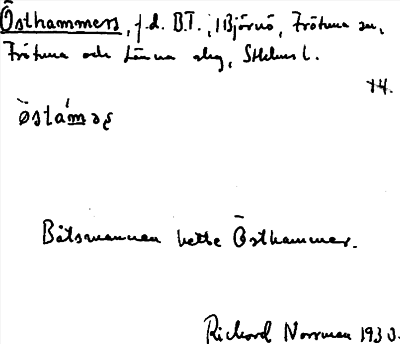 Östhammers, f.d. B.T., i Björnö, Frötuna sn,
Frötuna och Länna skg, Sthlms l.
14.
östámaṣ
Båtsmannen hette Östhammar.
Richard Norrman 1930.